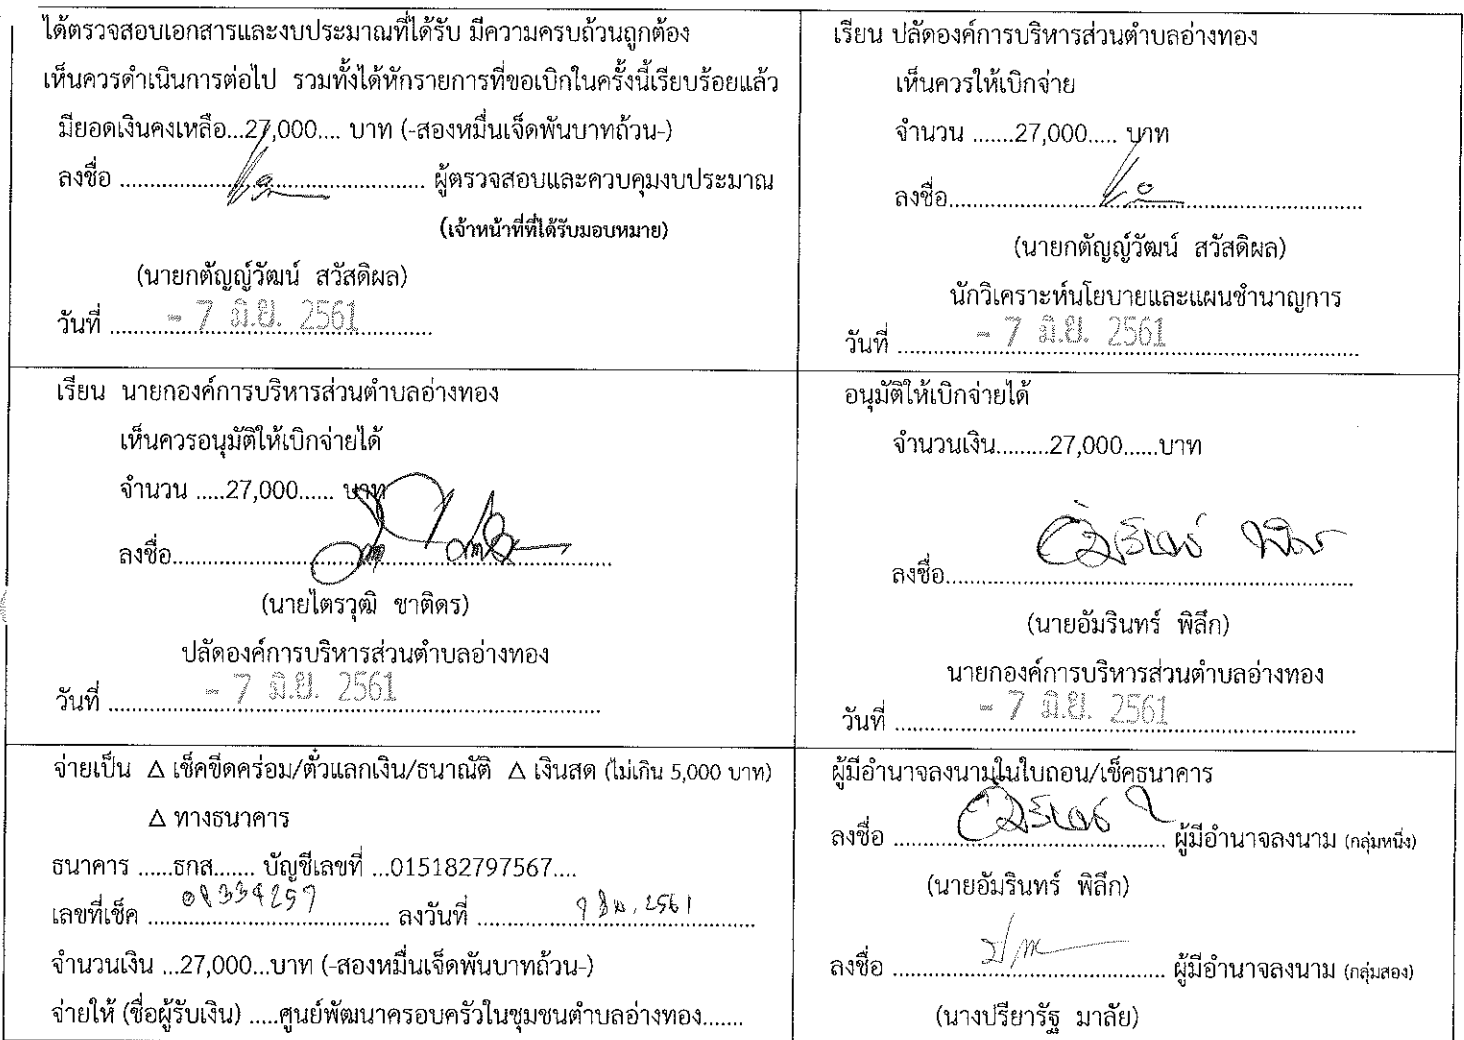 ได้ตรวจสอบเอกสารและงบประมาณที่ได้รับ มีความครบถ้วนถูกต้อง
เห็นควรดำเนินการต่อไป รวมทั้งได้หักรายการที่ขอเบิกในครั้งนี้เรียบร้อยแล้ว
มียอดเงินคงเหลือ...27,000.... บาท (-สองหมื่นเจ็ดพันบาทถ้วน-)
ลงชื่อ ........................................ ผู้ตรวจสอบและควบคุมงบประมาณ
(เจ้าหน้าที่ที่ได้รับมอบหมาย)
(นายกตัญญ์วัฒน์ สวัสดิผล)
วันที่ - 7 มิ.ย. 2561
เรียน ปลัดองค์การบริหารส่วนตำบลอ่างทอง
เห็นควรให้เบิกจ่าย
จำนวน .......27,000..... บาท
ลงชื่อ........................................
(นายกตัญญ์วัฒน์ สวัสดิผล)
นักวิเคราะห์นโยบายและแผนชำนาญการ
วันที่ - 7 มิ.ย. 2561
เรียน นายกองค์การบริหารส่วนตำบลอ่างทอง
เห็นควรอนุมัติให้เบิกจ่ายได้
จำนวน .....27,000...... บาท
ลงชื่อ........................................
(นายไตรวุฒิ ชาติดร)
ปลัดองค์การบริหารส่วนตำบลอ่างทอง
วันที่ - 7 มิ.ย. 2561
อนุมัติให้เบิกจ่ายได้
จำนวนเงิน.........27,000......บาท
ลงชื่อ........................................
(นายอัมรินทร์ พิลึก)
นายกองค์การบริหารส่วนตำบลอ่างทอง
วันที่ - 7 มิ.ย. 2561
จ่ายเป็น Δ เช็คขีดคร่อม/ตั๋วแลกเงิน/ธนาณัติ Δ เงินสด (ไม่เกิน 5,000 บาท)
Δ ทางธนาคาร
ธนาคาร ......ธกส....... บัญชีเลขที่ ...015182797567....
เลขที่เช็ค ........................................ ลงวันที่ 7 มิย. 2561
จำนวนเงิน ...27,000...บาท (-สองหมื่นเจ็ดพันบาทถ้วน-)
จ่ายให้ (ชื่อผู้รับเงิน) .....ศูนย์พัฒนาครอบครัวในชุมชนตำบลอ่างทอง.......
ผู้มีอำนาจลงนามในใบถอน/เช็คธนาคาร
ลงชื่อ ........................................ ผู้มีอำนาจลงนาม (กลุ่มหนึ่ง)
(นายอัมรินทร์ พิลึก)
ลงชื่อ ........................................ ผู้มีอำนาจลงนาม (กลุ่มสอง)
(นางปรียารัฐ มาลัย)